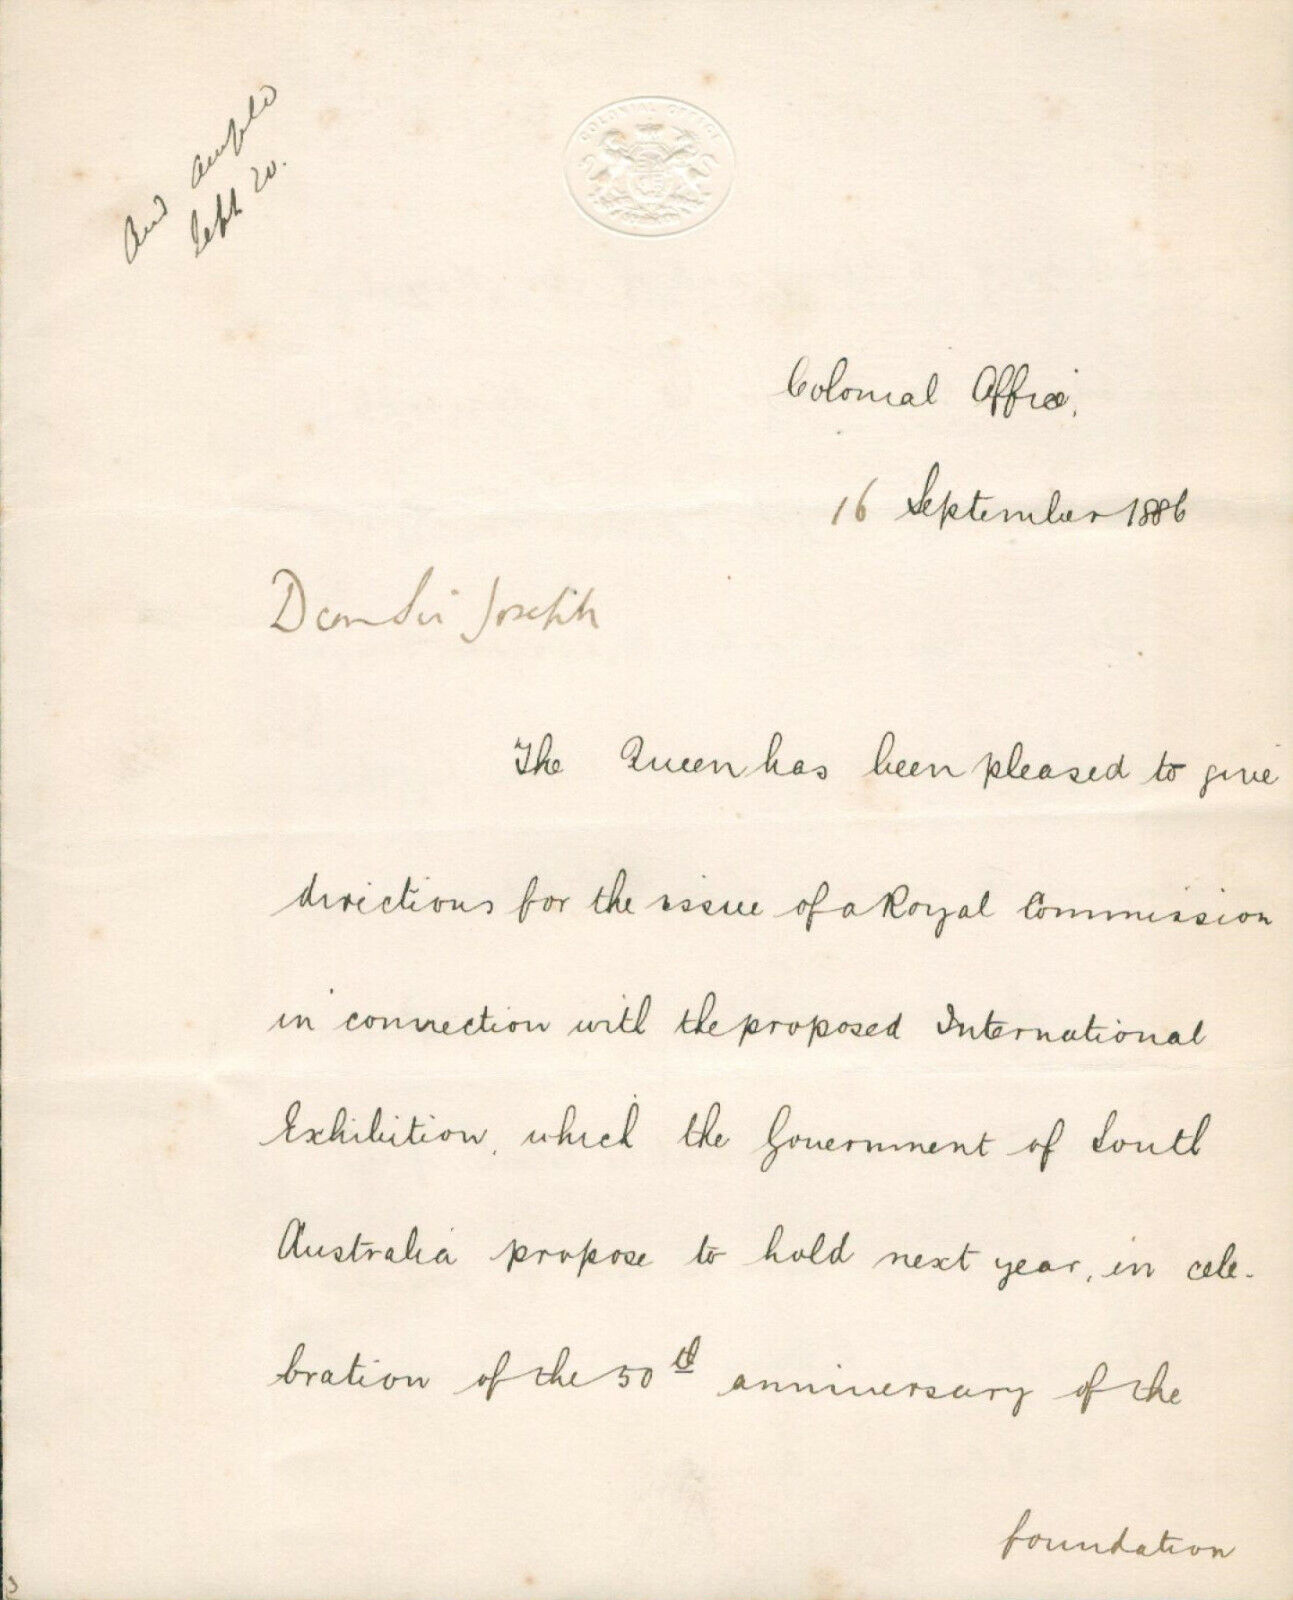 And
Sept 20.
COLONIAL OFFICE
Colonial Office,
16 September 1886
Dear Sir Joseph
The Queen has been pleased to give
directions for the issue of a Royal Commission
in connection with the proposed International
Exhibition, which the Government of South
Australia propose to hold next year, in cele-
bration of the 50th anniversary of the
foundation